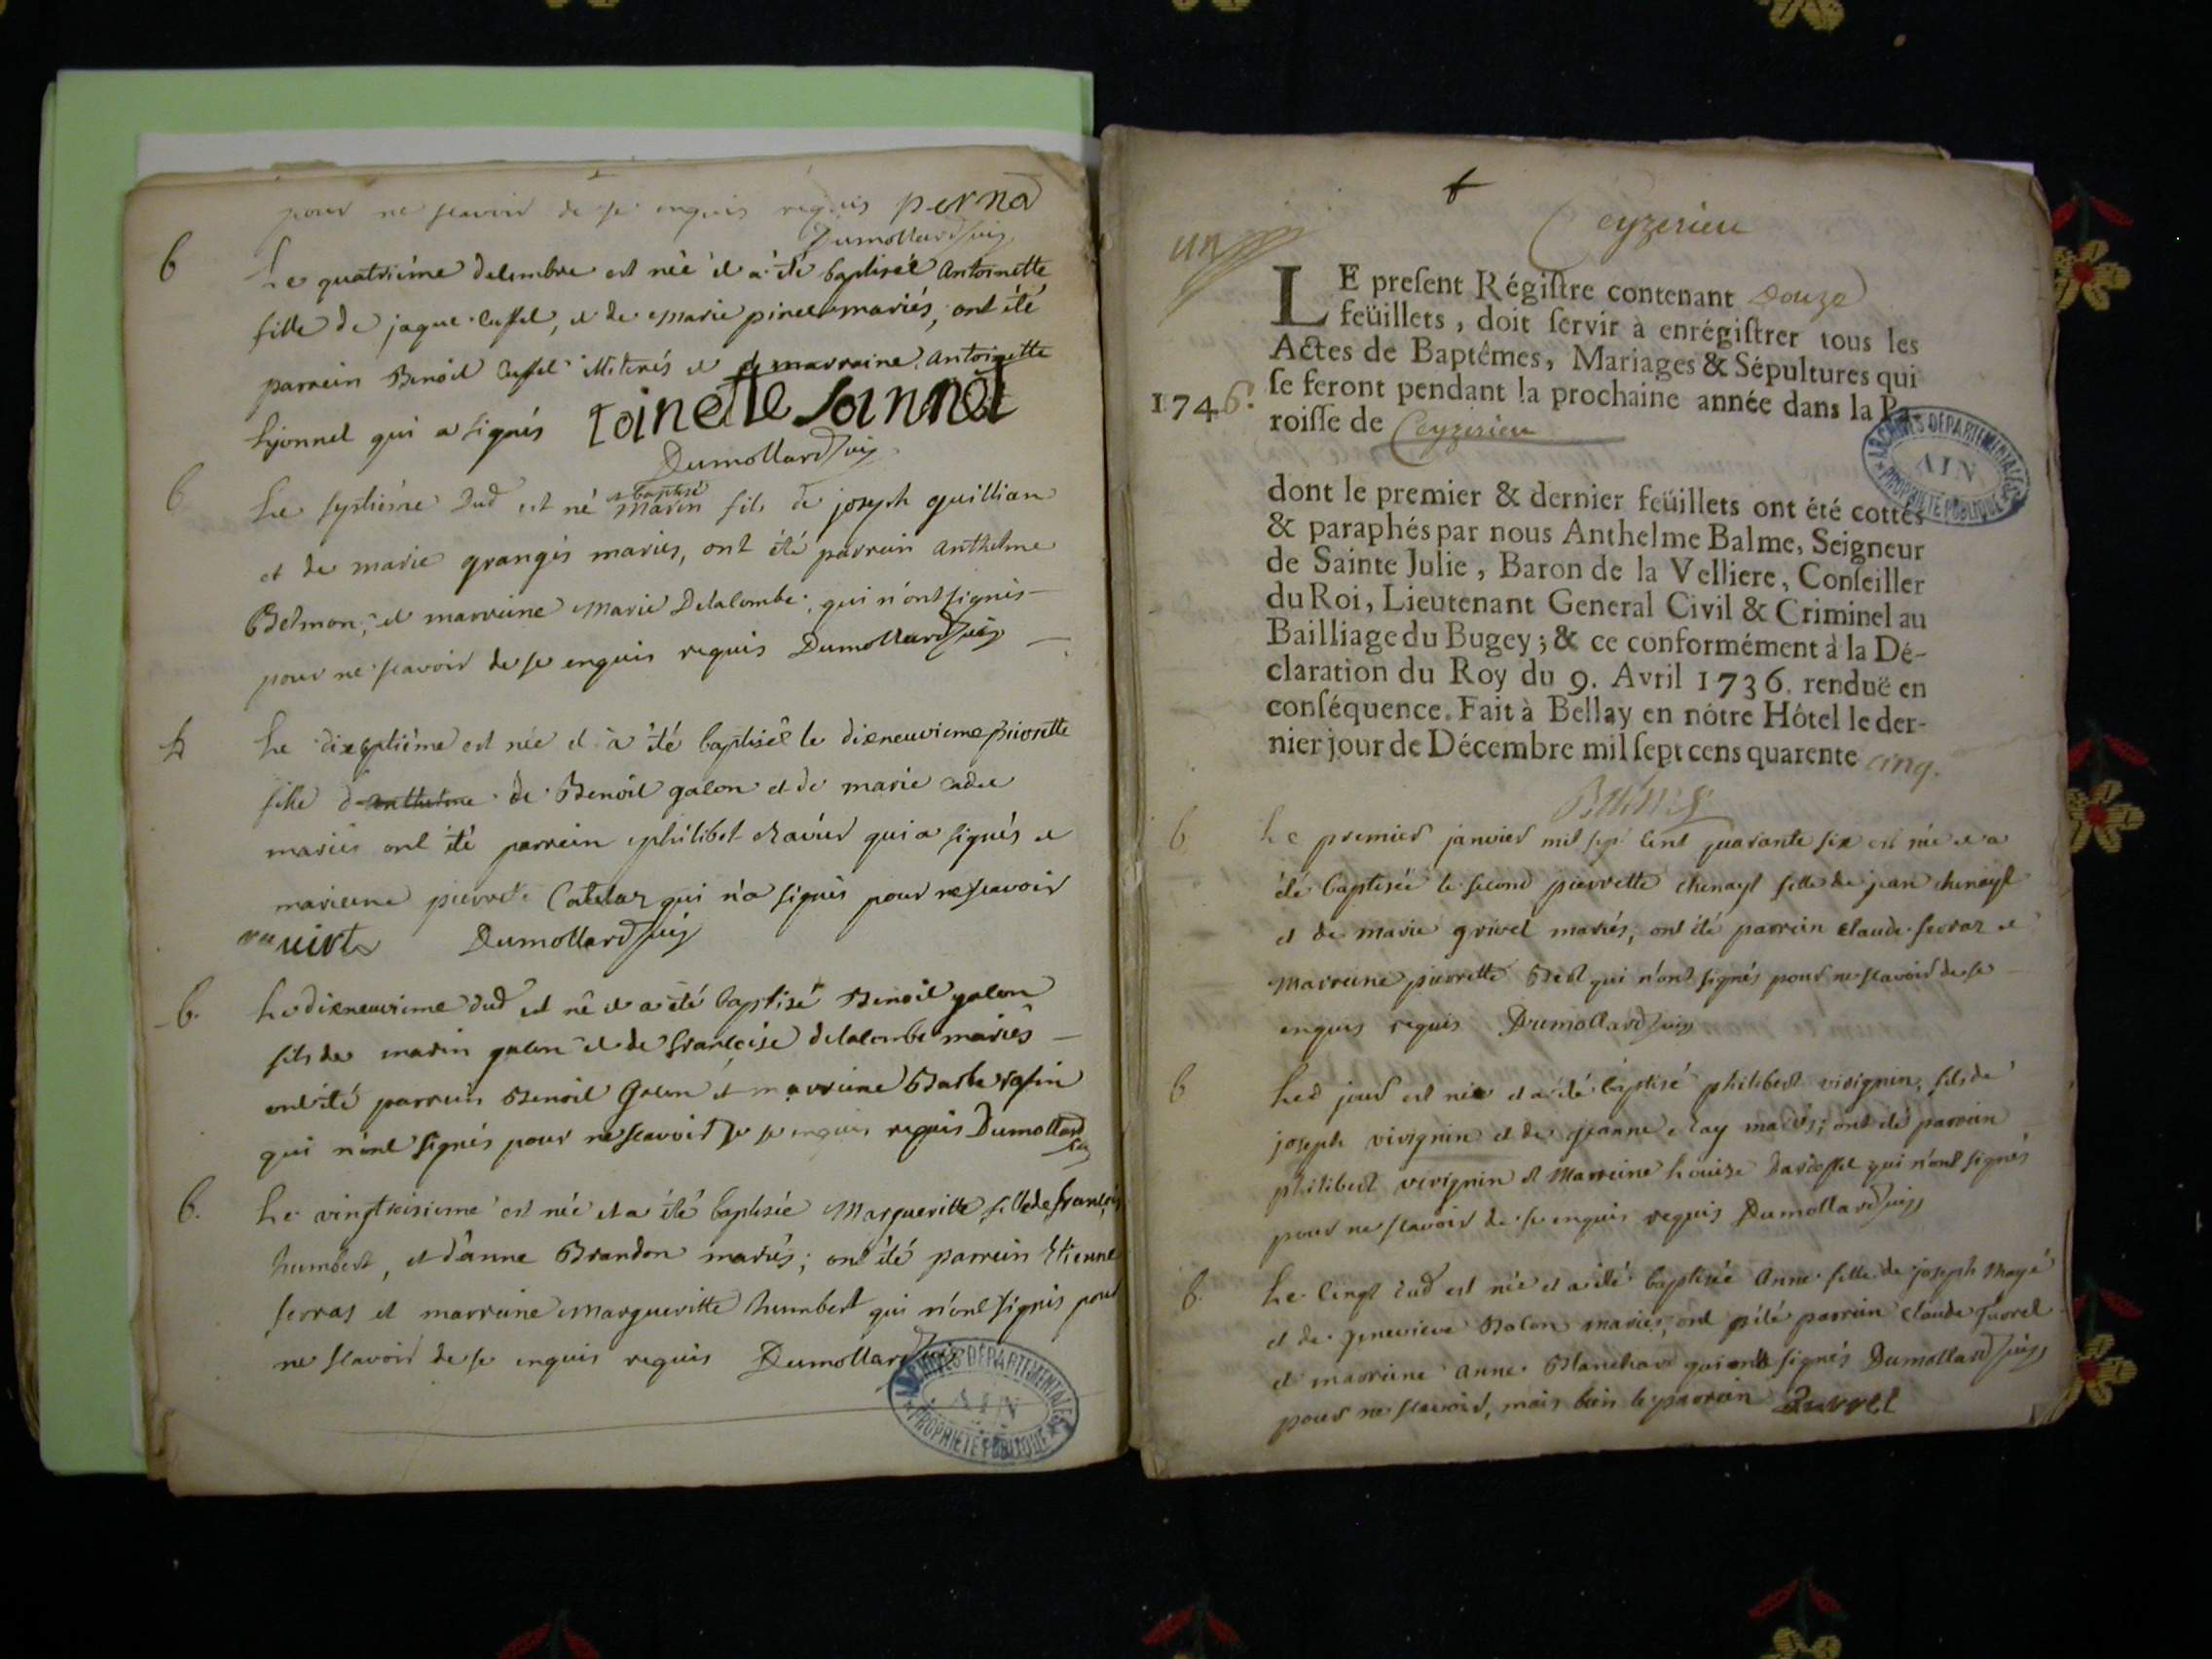 pour ne scavoir de ce enquis requis perna
Dumollard
b
Le quatriéme decembre est née et a été baptisée Antoinette
fille de jaque cussel, et de Marie pinel mariés, ont été
parrein Benoit cussel illiterés et marraine Antoinette
Lyonnel qui a signés toinette
Dumollard
b
Le septiéme dud est né et baptisé Marin fils de joseph guillian
et de marie grangés mariés, ont été parrein anthelme
Belmon, et marreine Marie Delalombe, qui n'ont signés
pour ne scavoir de ce enquis requis Dumollard
b
Le dixseptiéme est née et a été baptisée le dixneuvieme pierrette
fille d'anthelme de Benoit galon et de marie
mariés ont été parrein philibet ravier qui a signés et
marreine pierrete Catelaz qui n'a signés pour ne scavoir
Dumollard
b.
Le dixneuvieme dud est né et a été baptisé Benoit galon
fils de marin galon et de françoise delalombe mariés
ont été parrein Benoit Galon et marreine
qui n'ont signés pour ne scavoir de ce enquis requis Dumollard
b.
Le vingtroisieme est née et a été baptisée Margueritte fille de françois
humbert, et d'anne Brandon mariés; ont été parrein Etienne
serras et marreine margueritte humbert qui n'ont signés pour
ne scavoir de ce enquis requis Dumollard
ARCHIVES DÉPARTEMENTALES
AIN
PROPRIÉTÉ PUBLIQUE
Ceyzerieu
un
LE present Régistre contenant Douze
feüillets, doit servir à enrégistrer tous les
Actes de Baptêmes, Mariages & Sépultures qui
1746. se feront pendant la prochaine année dans la Pa-
roisse de Ceyzerieu
ARCHIVES DÉPARTEMENTALES
AIN
PROPRIÉTÉ PUBLIQUE
dont le premier & dernier feüillets ont été cottés
& paraphés par nous Anthelme Balme, Seigneur
de Sainte Julie, Baron de la Velliere, Conseiller
du Roi, Lieutenant General Civil & Criminel au
Bailliage du Bugey; & ce conformément à la Dé-
claration du Roy du 9. Avril 1736. renduë en
conséquence. Fait à Bellay en nôtre Hôtel le der-
nier jour de Décembre mil sept cens quarente cinq.
b
Le premier janvier mil sept cent quarante six est née et a
été baptisée le second pierrette chenayl fille de jean chenayl
et de marie grivel mariés, ont été parrein claude serraz et
marreine pierrette qui n'ont signés pour ne scavoir de ce
enquis requis Dumollard
b
Led jour est né et a été baptisé philibert vivignin, fils de
joseph vivignin et de jeanne ray mariés; ont été parrein
philibert vivignin et Marreine Louise qui n'ont signés
pour ne scavoir de ce enquis requis Dumollard
b.
Le vingt dud est née et a été baptisée Anne fille de joseph Mayé
et de genevieve Bolon mariés, ont été parrein claude
et marreine anne Blanchard qui signés Dumollard
pour ne scavoir, mais bien le parrein